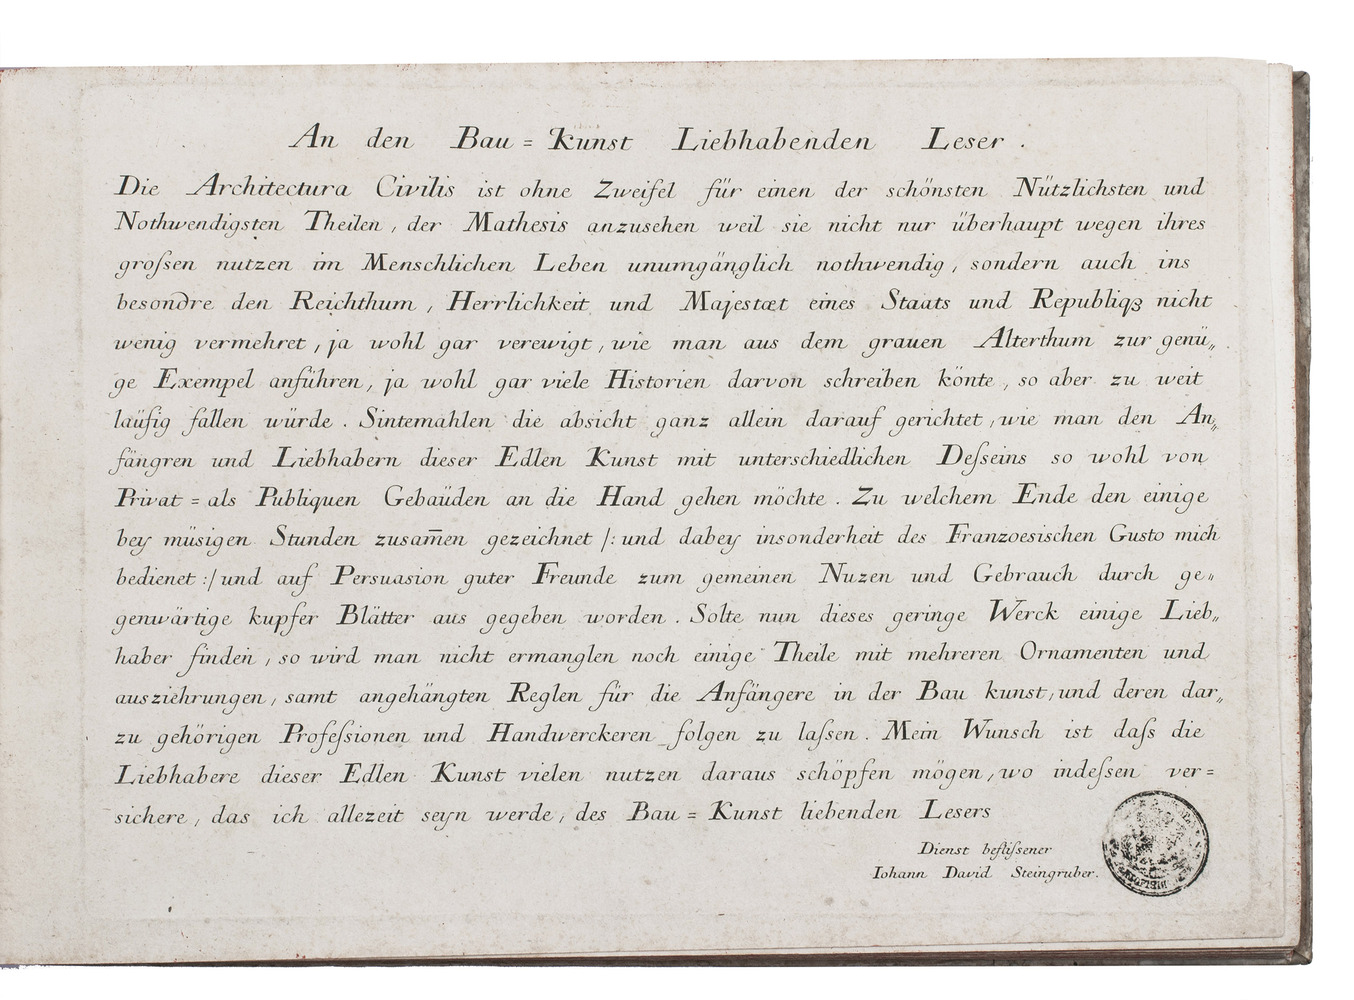 An den Bau = Kunst Liebhabenden Leser .
Die Architectura Civilis ist ohne Zweifel für einen der schönsten Nützlichsten und
Nothwendigsten Theilen , der Mathesis anzusehen weil sie nicht nur überhaupt wegen ihres
groſsen nutzen im Menschlichen Leben unumgänglich nothwendig , sondern auch ins
besondre den Reichthum , Herrlichkeit und Majestæt eines Staats und nicht
wenig vermehret , ja wohl gar verewigt , wie man aus dem grauen Alterthum zur genü„
ge Exempel anführen , ja wohl gar viele Historien darvon schreiben könte , so aber zu weit
laüfig fallen würde . Sintemahlen die absicht ganz allein darauf gerichtet , wie man den An„
fängren und Liebhabern dieser Edlen Kunst mit unterschiedlichen Deſseins so wohl von
Privat = als Publiquen Gebaüden an die Hand gehen möchte . Zu welchem Ende den einige
bey müsigen Stunden zusam̄en gezeichnet /: und dabey insonderheit des Franzoesischen Gusto mich
bedienet :/ und auf Persuasion guter Freunde zum gemeinen Nuzen und Gebrauch durch ge„
genwärtige kupfer Blätter aus gegeben worden . Solte nun dieses geringe Werck einige Lieb„
haber finden , so wird man nicht ermanglen noch einige Theile mit mehreren Ornamenten und
ausziehrungen , samt angehängten Reglen für die Anfängere in der Bau kunst , und deren dar„
zu gehörigen Profeſsionen und Handwerckeren folgen zu laſsen . Mein Wunsch ist daſs die
Liebhabere dieser Edlen Kunst vielen nutzen daraus schöpfen mögen , wo indeſsen ver =
sichere , das ich allezeit seyn werde , des Bau = Kunst liebenden Lesers
Dienst befliſsener
Iohann David Steingruber .